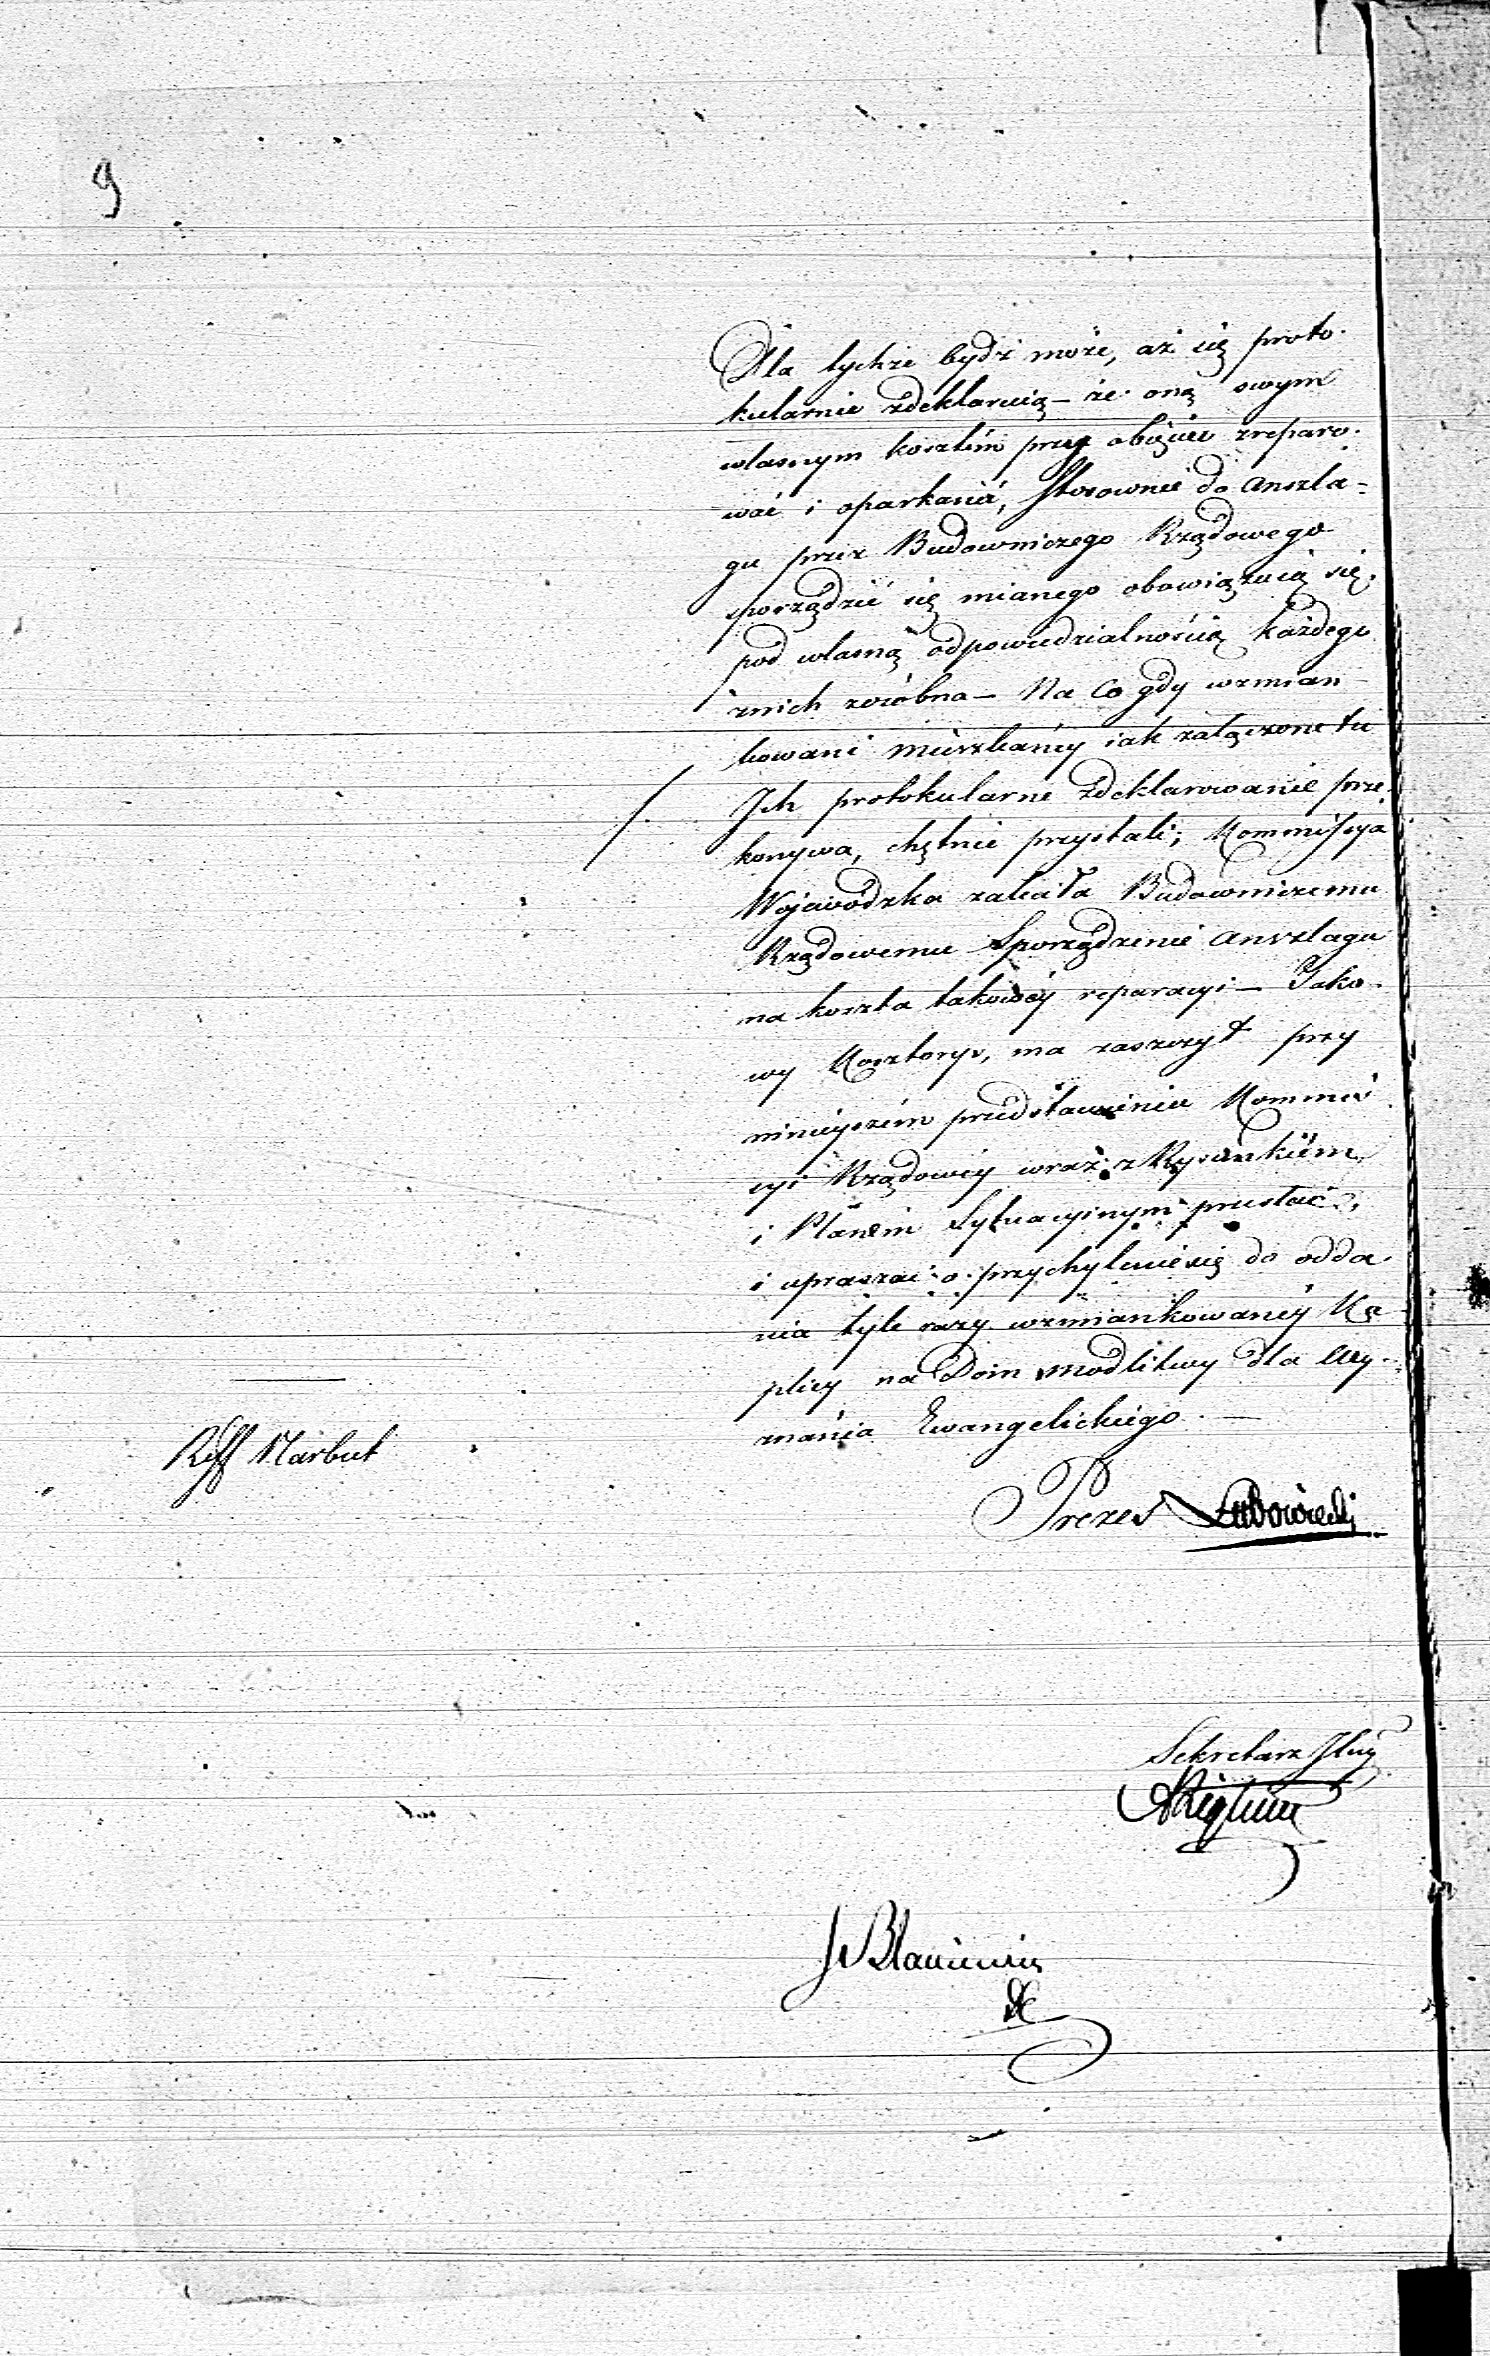 9
Dla tychże bydź może, aż się proto-
kularnie zdeklaruią – że oną swym
własnym kosztem przez obięcie zreparo-
wać i oparkanić, stosownie do anszla-
gu przez Budowniczego Rządowego
sporządzić się mianego obowiązuią się,
pod własną odpowiedzialnością każdego
znich zosóbna – Na co gdy wzmian-
kowani mieszkańcy iak załączone tu
/. Ich protokularne zdeklarowanie prze-
konywa, chętnie przystali; Kommissya
Wojewódzka zaleciła Budowniczemu
Rządowemu Sporządzenie anszlagu
na koszta takowéy reparacyi – Jako-
wy Kosztorys, ma zaszczyt przy
ninieyszém przedstawieniu Kommis-
syi Rządowéy wraz z Rysunkiem
i Planem Sytuacyinym przesłać,
i upraszać o przychylenie się do odda-
nia tyle razy wzmiankowanéy Ka-
plicy na Dom modlitwy dla Wy-
znania Ewangelickiego. –
Reff Marbut
Prezes
Sekretarz Jlny